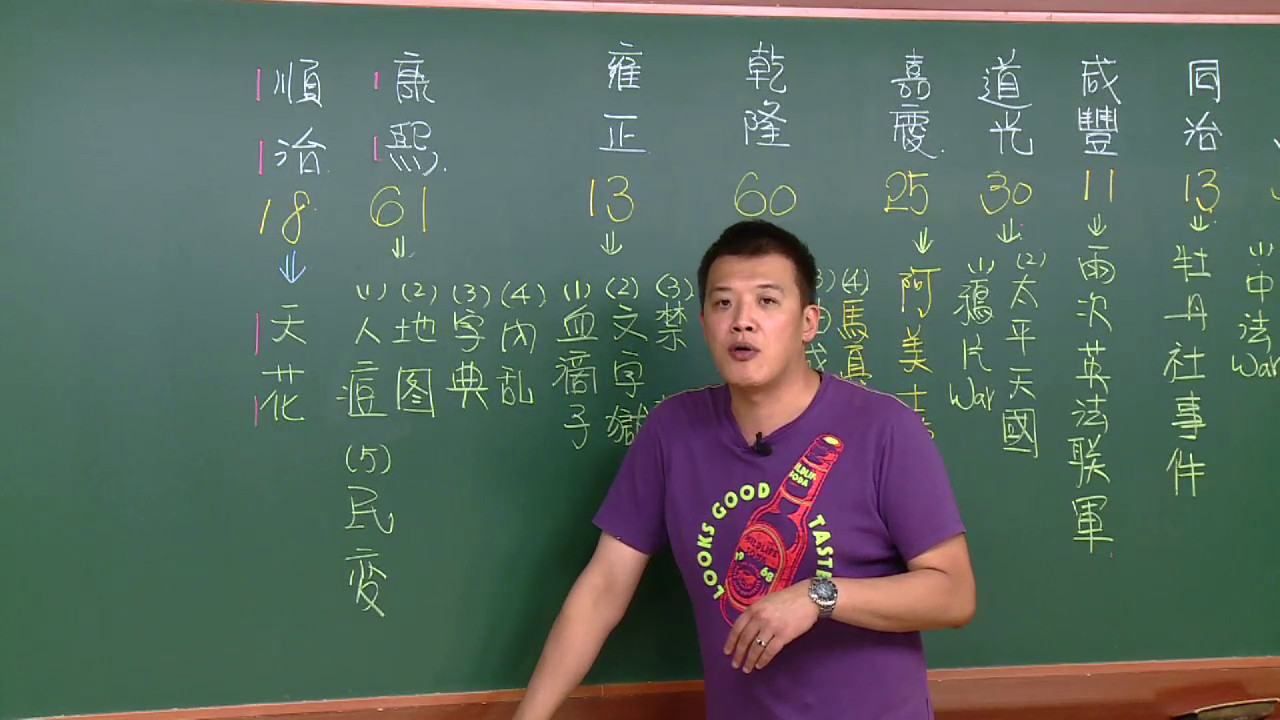 順治
18
天花
康熙
61
(1)人痘
(2)地图
(3)字典
(4)內乱
(5)民変
雍正
13
(1)血滴子
(2)文字獄
(3)禁
乾隆
60
(4)馬
嘉慶
25
阿美士
道光
30
(1)鴉片War
(2)太平天國
咸豐
11
兩次英法联軍
同治
13
牡丹社事件
(1)中法War
LOOKS GOOD
TASTE
WILDLIFE
SODA
WILDLIFE
SODA
19 68